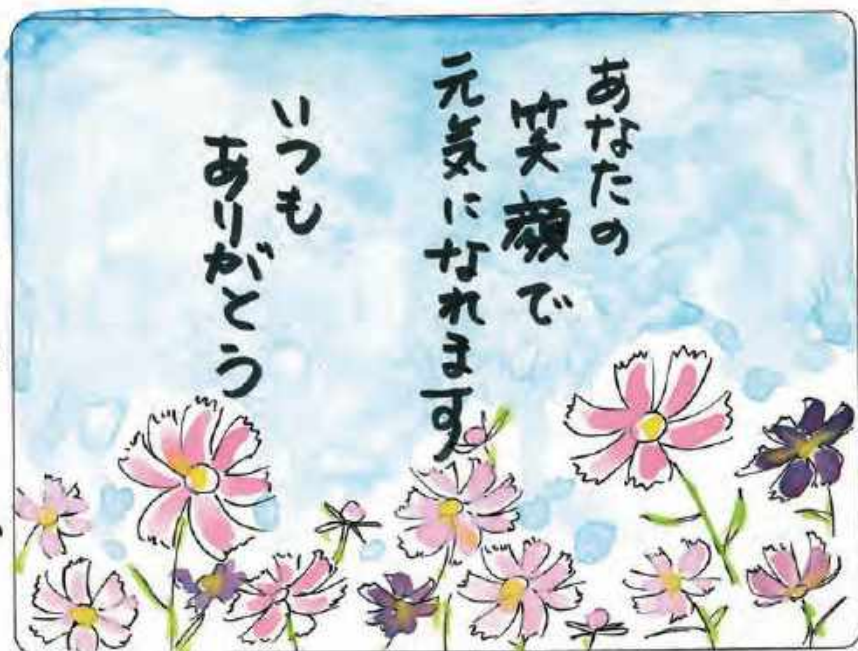 あなたの
笑顔で
元気になれます
いつも
ありがとう